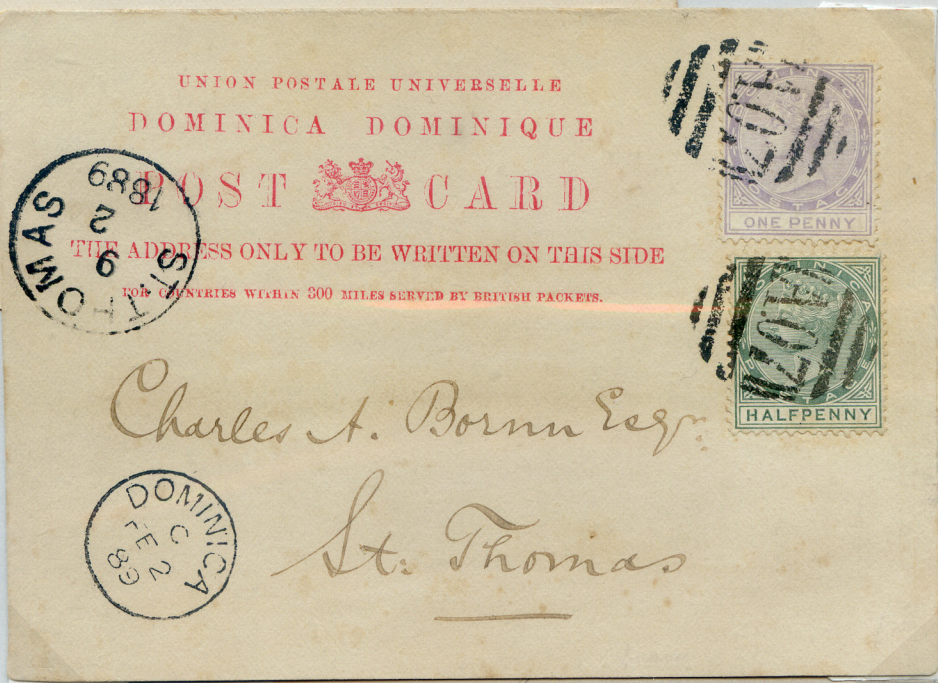 UNION POSTALE UNIVERSELLE
DOMINICA DOMINIQUE
POST CARD
THE ADDRESS ONLY TO BE WRITTEN ON THIS SIDE
FOR COUNTRIES WITHIN 300 MILES SERVED BY BRITISH PACKETS.
ST. THOMAS
9
2
1889
DOMINICA
POSTAGE
ONE PENNY
A07
DOMINICA
POSTAGE
HALFPENNY
A07
Charles A. Bornn Esqr.
St. Thomas
DOMINICA
C
FE 2
89